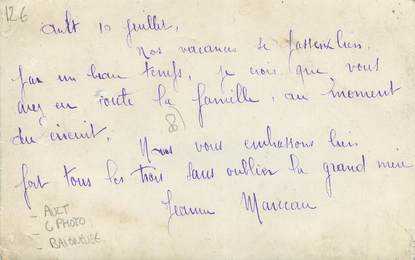 12€
Ault 10 juillet.
Nos vacances se passent bien,
par un beau temps, je crois que vous
avez eu toute la famille, au moment
du circuit. Nous vous embrassons bien
fort tous les trois sans oublier la grand mère
Jeanne Marceau
- AULT
- C PHOTO
- BAIGNEUSE